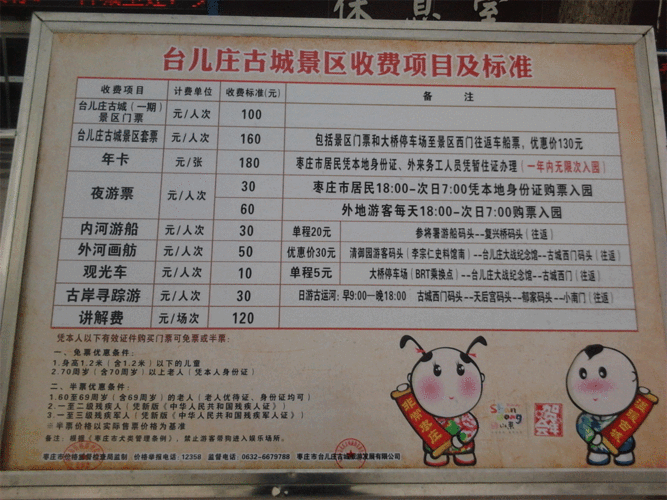 休息室
台儿庄古城景区收费项目及标准
收费项目 计费单位 收费标准(元) 备 注
台儿庄古城(一期)景区门票 元/人次 100
台儿庄古城景区套票 元/人次 160 包括景区门票和大桥停车场至景区西门往返车船票，优惠价130元
年卡 元/张 180 枣庄市居民凭本地身份证、外来务工人员凭暂住证办理(一年内无限次入园)
夜游票 元/人次 30 枣庄市居民18:00-次日7:00凭本地身份证购票入园
60 外地游客每天18:00-次日7:00购票入园
内河游船 元/人次 30 单程20元 参将署游船码头--复兴桥码头(往返)
外河画舫 元/人次 50 优惠价30元 清御园游客码头(李宗仁史料馆南)--台儿庄大战纪念馆--古城西门码头(往返)
观光车 元/人次 10 单程5元 大桥停车场(BRT乘换点)--台儿庄大战纪念馆--古城西门(往返)
古岸寻踪游 元/人次 30 日游古运河: 早9:00—晚18:00 古城西门码头--天后宫码头--郁家码头--小南门(往返)
讲解费 元/场次 120
凭本人以下有效证件购买门票可免票或半票:
一、免票优惠条件:
1.身高1.2米(含1.2米)以下的儿童
2.70周岁(含70周岁)以上老人(凭本人身份证)
二、半票优惠条件:
1.60至69周岁(含69周岁)的老人(老人优待证、身份证均可)
2.一至二级残疾人(凭新版《中华人民共和国残疾人证》)
3.一至三级残疾军人(凭新版《中华人民共和国残疾军人证》)
※半票价格以实际售票价格为基准
备注: 根据(枣庄市犬类管理条例), 禁止游客带狗进入娱乐场所。
枣庄市价格监督检查局监制 价格举报电话: 12358 监督电话: 0632-6679788 枣庄市台儿庄古城旅游发展有限公司